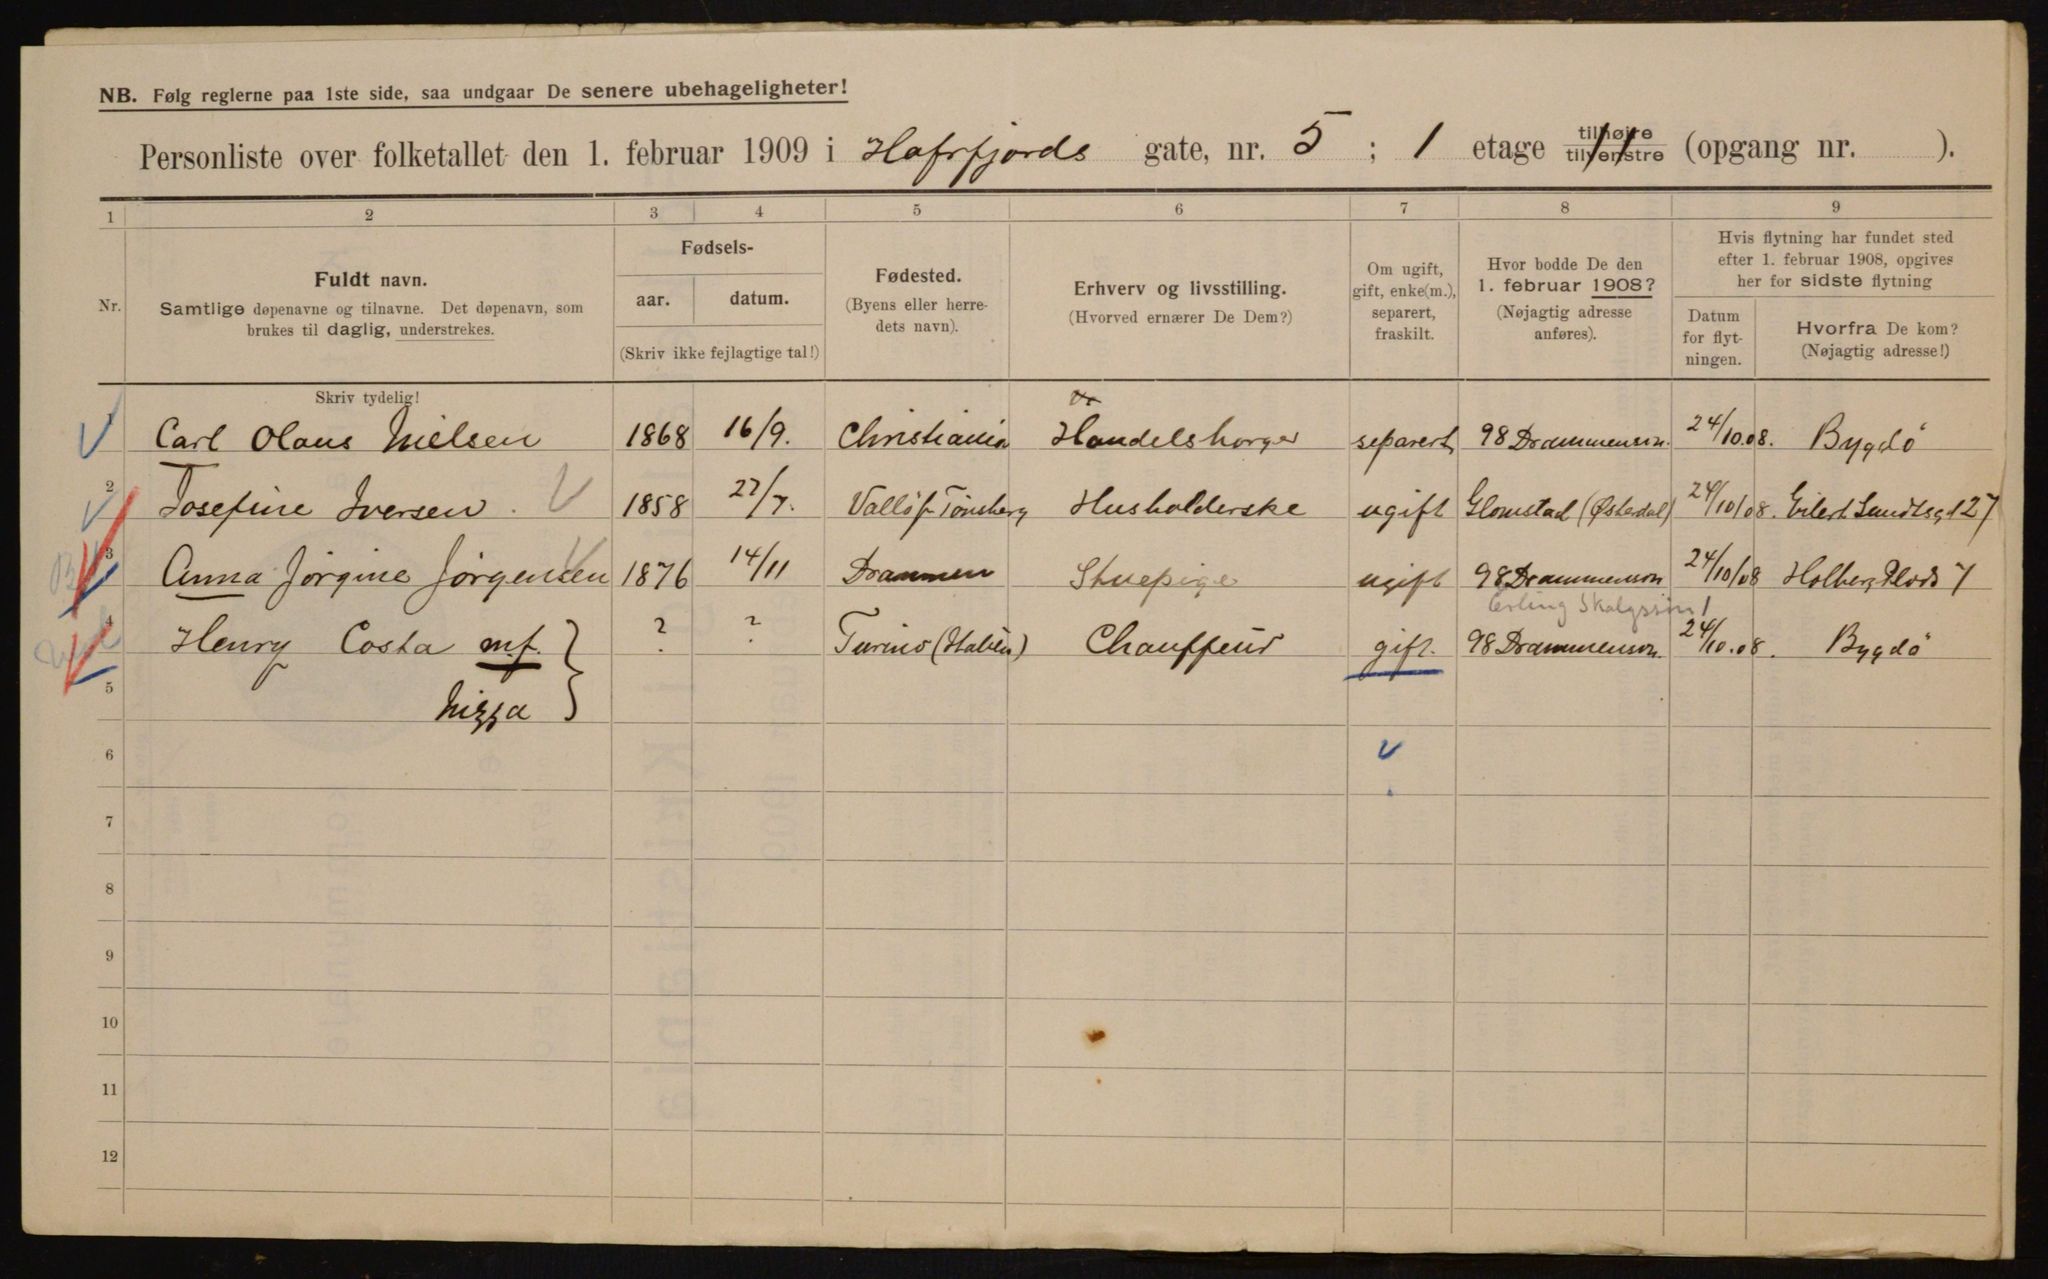 NB. Følg reglerne paa 1ste side, saa undgaar De senere ubehageligheter!
Personliste over folketallet den 1. februar 1909 i Hafrfjords gate, nr. 5 ; 1 etage tilhøjre tilvenstre (opgang nr. ).
1 2 3 4 5 6 7 8 9
Nr.
Fuldt navn.
Samtlige døpenavne og tilnavne. Det døpenavn, som
brukes til daglig, understrekes.
Fødsels-
aar. datum.
(Skriv ikke fejlagtige tal!)
Fødested.
(Byens eller herre-
dets navn).
Erhverv og livsstilling.
(Hvorved ernærer De Dem?)
Om ugift,
gift, enke(m.),
separert,
fraskilt.
Hvor bodde De den
1. februar 1908?
(Nøjagtig adresse
anføres).
Hvis flytning har fundet sted
efter 1. februar 1908, opgives
her for sidste flytning
Datum
for flyt-
ningen.
Hvorfra De kom?
(Nøjagtig adresse!)
Skriv tydelig!
1 Carl Olaus Nielsen 1868 16/9. Christiania Handelsborger separert 98 Drammensvn. 24/10.08. Bygdö
2 Josefine Iversen. 1858 27/7. Vallö pr Tönsberg Husholderske ugift Glomstad (Østerdal) 24/10/08. Eilert Sundtsg 27
3 Anna Jörgine Jörgensen 1876 14/11 Drammen Stuepige ugift 98 Drammensvn 24/10/08 Holberg Plads 7
Erling Skalgssøn 1
4 Henry Costa m.f. ? ? Turino (Italien) Chauffeur gift. 98 Drammensvn. 24/10.08. Bygdö
5 Nizza
6
7
8
9
10
11
12